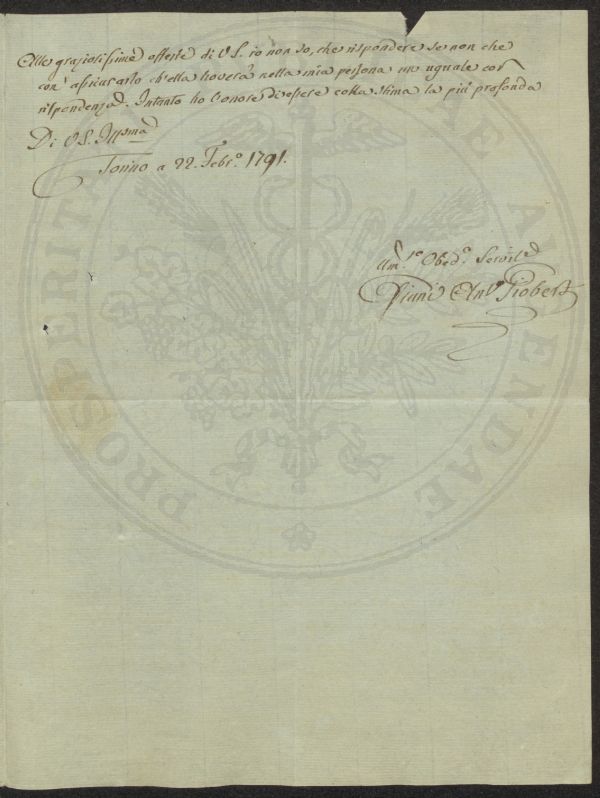 Alle graziosissime offerte di V.S. io non so, che rispondere se non che
con assicurarlo ch'ella troverà nella mia persona un uguale cor
rispondenza. Intanto ho l'onore di essere colla stima la più profonda
Di V.S. Illma
Torino a 22. Febr.o 1791.
Obed.o Servit.e
Ant.o Giobert
PROSPERITATI PUBLICAE AUGENDAE